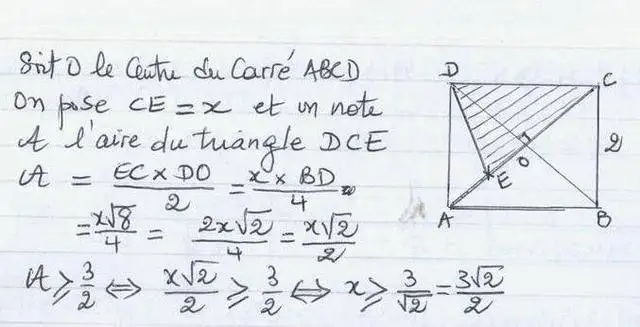 Soit O le Centre du Carré ABCD
On pose CE = x et on note
A l'aire du triangle DCE
A = EC × DO / 2 = x × BD / 4
= x√8 / 4 = 2x√2 / 4 = x√2 / 2
A ≥ 3/2 ⇔ x√2 / 2 ≥ 3/2 ⇔ x ≥ 3/√2 = 3√2 / 2
D C
2
O
E
A B